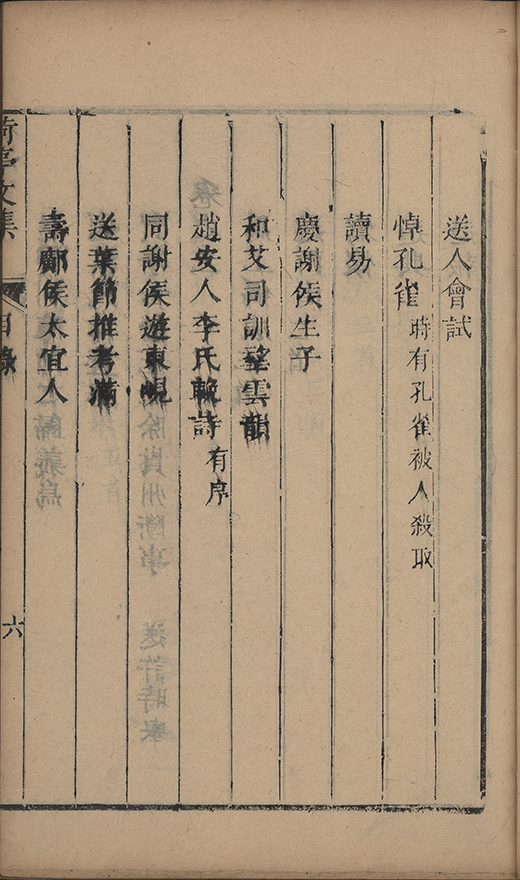 送人會試
悼孔雀 時有孔雀被人殺取
讀易
慶謝侯生子
和艾司訓望雲韻
趙安人李氏輓詩 有序
同謝侯遊東峴
送葉節推考滿
壽鄺侯太宜人
荷亭文集 目錄 六